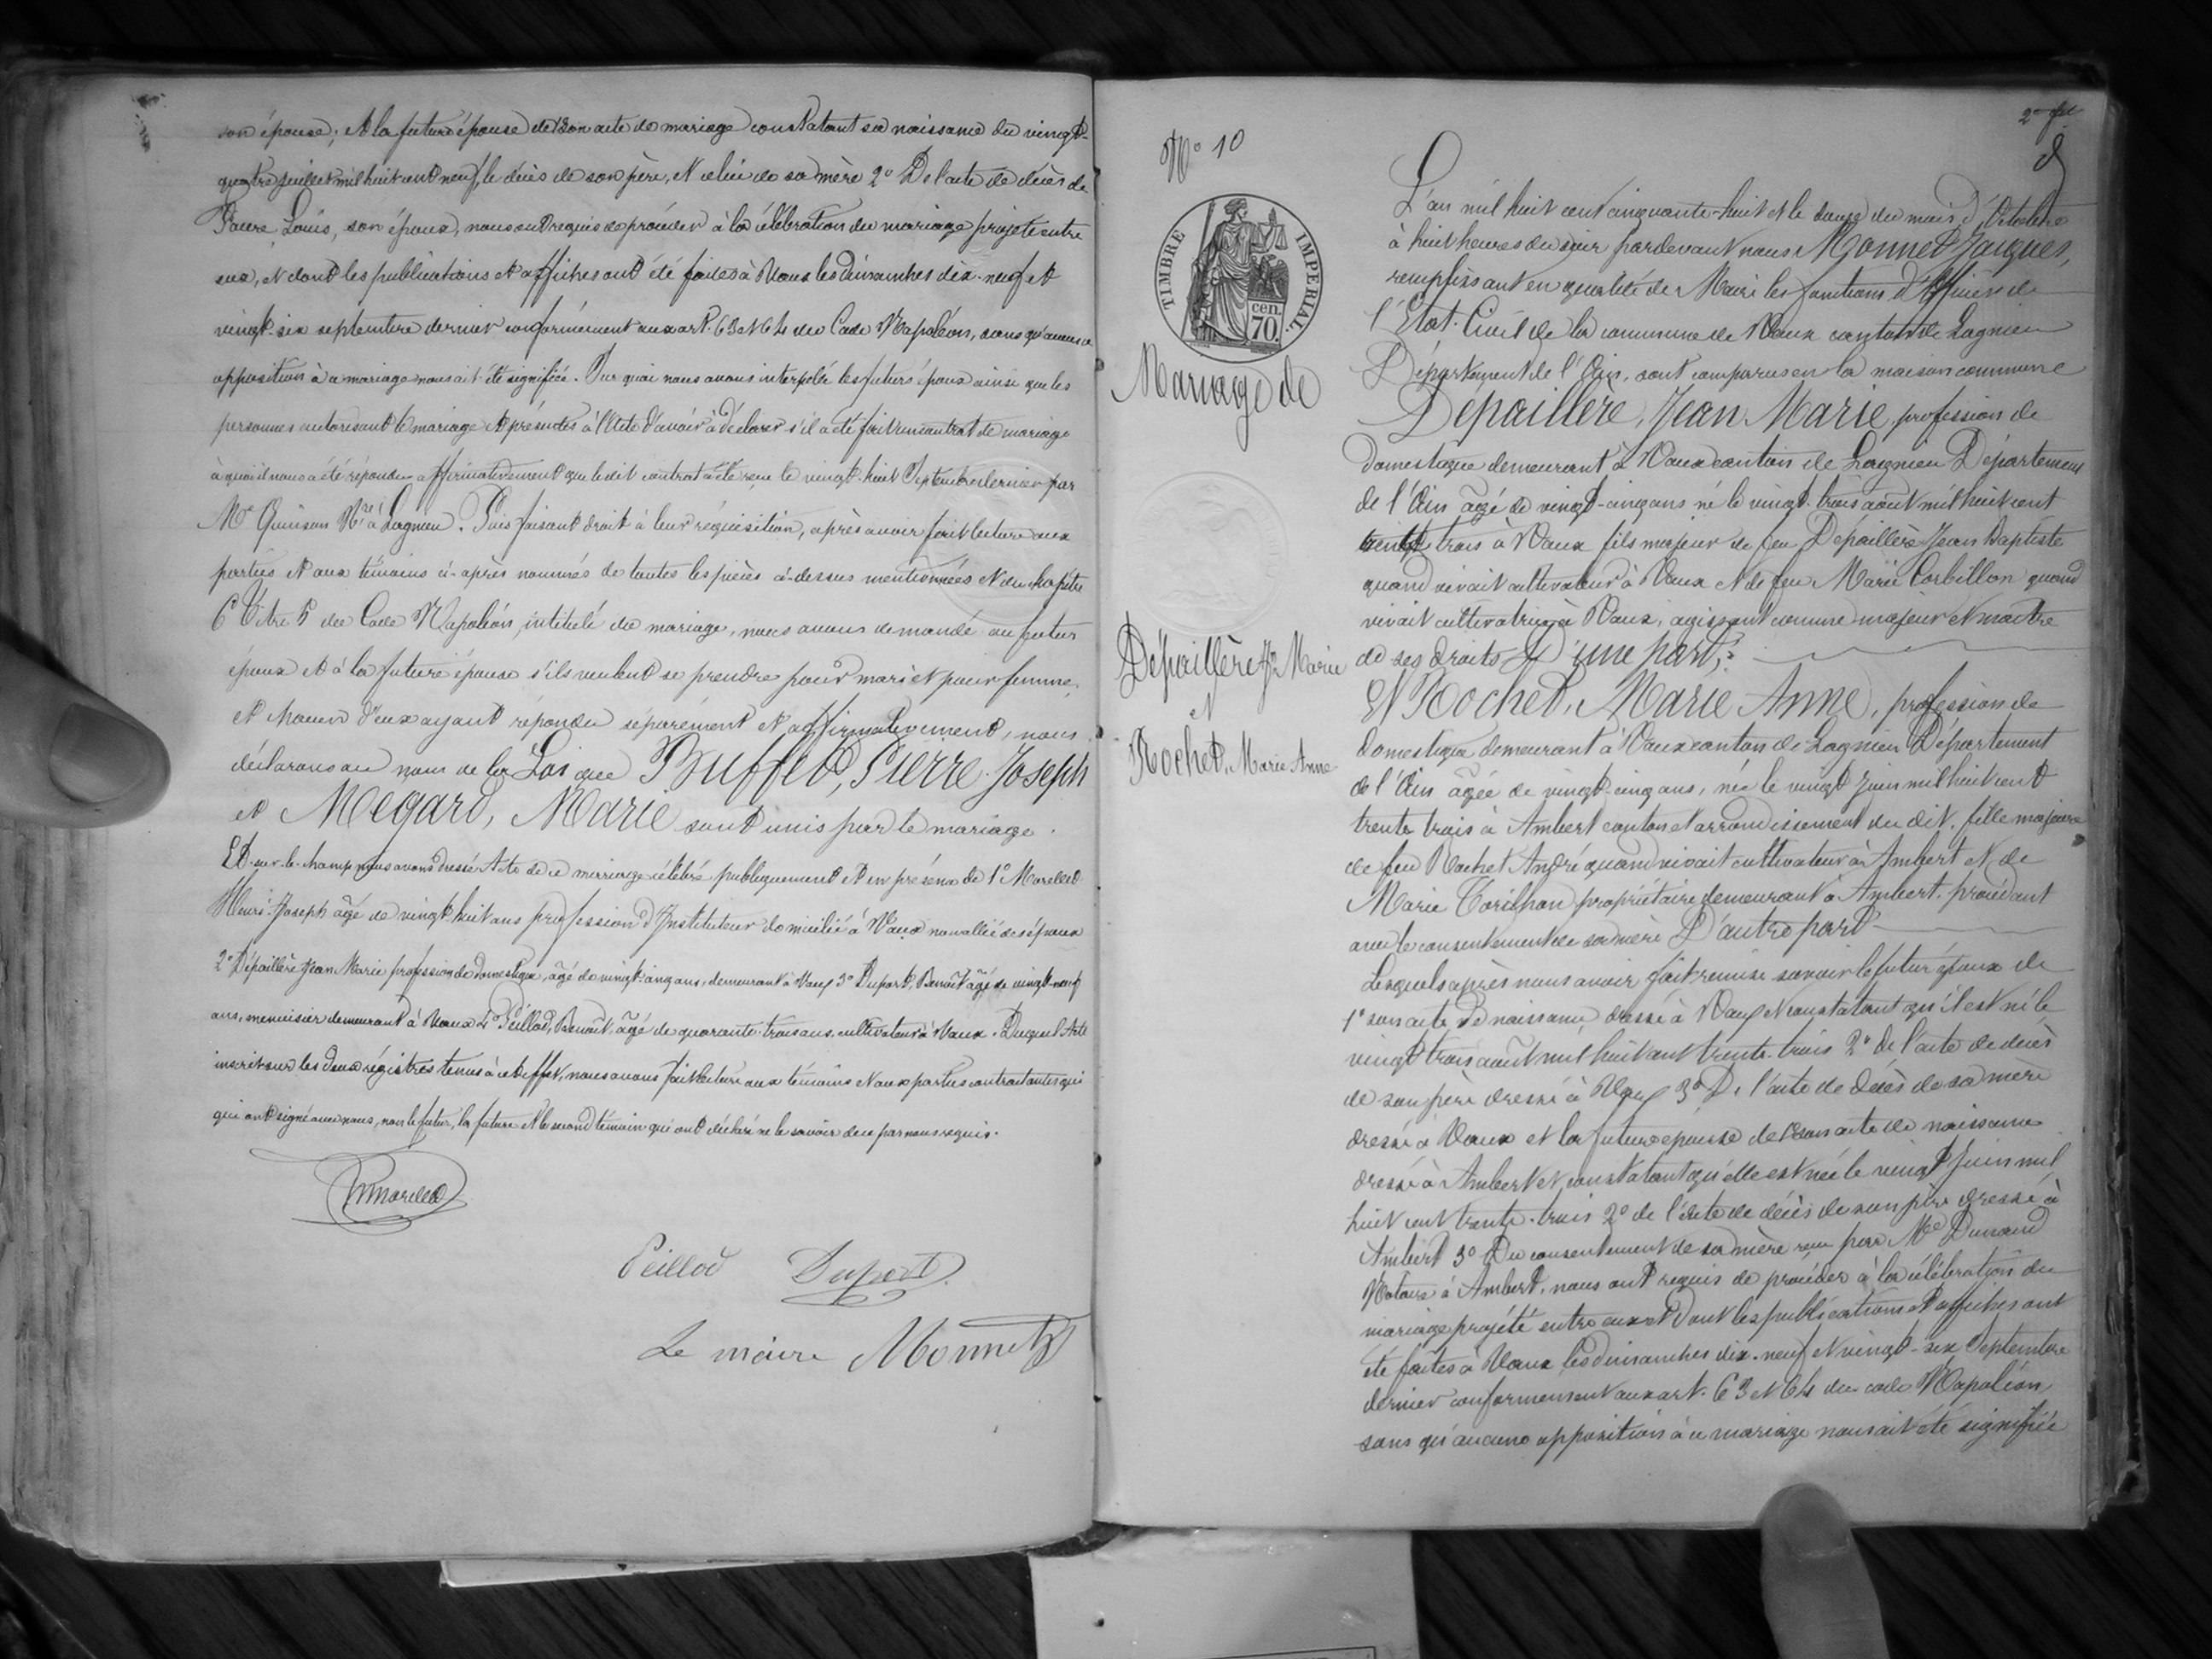 son épouse; Et la future épouse de 1° son acte de mariage constatant sa naissance du vingt-
quatre juillet mil huit cent neuf, le décès de son père, et celui de sa mère 2° De l'acte de décès de
Favre Louis, son époux, nous ont requis de procéder à la célébration du mariage projeté entre
eux, et dont les publications et affiches ont été faites à Vaux les dimanches dix-neuf et
vingt-six septembre dernier conformément aux art. 63 et 64 du Code Napoléon, sans qu'aucune
opposition à ce mariage nous ait été signifiée. Sur quoi nous avons interpellé les futurs époux ainsi que les
personnes autorisant le mariage et présentes à l'acte d'avoir à déclarer s'il a été fait un contrat de mariage
à quoi il nous a été répondu affirmativement que le dit contrat a été reçu le vingt-huit Septembre dernier par
Me Quinson Nre à Lagnieu. Puis faisant droit à leur réquisition, après avoir fait lecture aux
parties et aux témoins ci-après nommés de toutes les pièces ci-dessus mentionnées et du chapitre
6 Titre 5 du Code Napoléon, intitulé du mariage, nous avons demandé au futur
époux et à la future épouse s'ils veulent se prendre pour mari et pour femme,
et chacun d'eux ayant répondu séparément et affirmativement, nous
déclarons au nom de la Loi que Buffet, Pierre-Joseph
et Megard, Marie sont unis par le mariage.
Et sur-le-champ nous avons dressé Acte de ce mariage célébré publiquement et en présence de 1° Morellet
Henri-Joseph âgé de vingt huit ans profession d'Instituteur domicilié à Vaux non allié des époux
2° Dépaillère Jean Marie profession de domestique, âgé de vingt-cinq ans, demeurant à Vaux 3° Duport, Benoit âgé de vingt-neuf
ans, menuisier demeurant à Vaux 4° Peillod, Benoît, âgé de quarante-trois ans cultivateur à Vaux. Duquel Acte
inscrit sur les deux régistres tenus à cet effet, nous avons fait lecture aux témoins et aux parties contractantes qui
qui ont signé avec nous, non le futur, la future et le second témoin qui ont déclaré ne le savoir de ce par nous requis.
Peillod Duport
Le maire Monnet
2me fet
N° 10
TIMBRE IMPÉRIAL.
cen.
70.
Mariage de
Dépaillère Jn Marie
et
Rochet, Marie Anne
L'an mil huit cent cinquante-huit et le douze du mois d'Octobre
à huit heures du soir pardevant nous Monnet Jacques,
remplissant en qualité de Maire les fonctions d'Officier de
l'État-Civil de la commune de Vaux canton de Lagnieu
Département de l'Ain, sont comparus en la maison commune
Dépaillère, Jean Marie, profession de
domestique demeurant à Vaux canton de Lagnieu Département
de l'Ain âgé de vingt-cinq ans né le vingt-trois août mil huit cent
trente trois à Vaux fils majeur de feu Dépaillère Jean Baptiste
quand vivait cultivateur à Vaux et de feu Marie Corbillon quand
vivait cultivatrice à Vaux, agissant comme majeur et maître
de ses droits D'une part,
Et Rochet, Marie Anne, profession de
domestique demeurant à Vaux canton de Lagnieu Département
de l'Ain âgée de vingt-cinq ans, née le vingt juin mil huit cent
trente trois à Ambert canton et arrondissement du dit, fille majeure
de feu Rochet André quand vivait cultivateur à Ambert et de
Marie Corilhon propriétaire demeurant à Ambert, procédant
avec le consentement de sa mère D'autre part
Lesquels après nous avoir fait remise savoir le futur époux de
1° son acte de naissance dressé à Vaux et constatant qu'il est né le
vingt trois août mil huit cent trente-trois 2° de l'acte de décès
de son père dressé à Vaux 3° De l'acte de décès de sa mère
dressé à Vaux et la future épouse de 1° son acte de naissance
dressé à Ambert et constatant qu'elle est née le vingt Juin mil
huit cent trente-trois 2° de l'acte de décès de son père dressé à
Ambert 3° Du consentement de sa mère reçu par Me Durand
Notaire à Ambert, nous ont requis de procéder à la célébration du
mariage projété entre eux et dont les publications et affiches ont
été faites à Vaux les dimanches dix-neuf et vingt-six Septembre
dernier conformément aux art. 63 et 64 du code Napoléon
sans qu'aucune opposition à ce mariage nous ait été signifiée